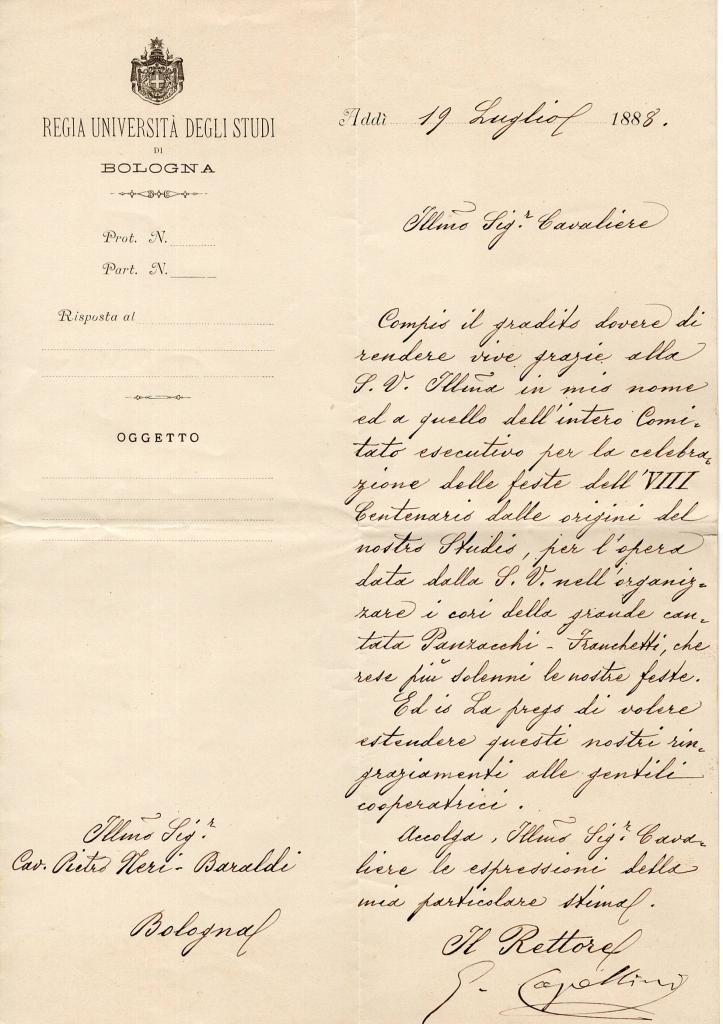 REGIA UNIVERSITÀ DEGLI STUDI
DI
BOLOGNA
Prot. N.
Part. N.
Risposta al
OGGETTO
Illmo Sigr.
Cav. Pietro Neri-Baraldi
Bologna
Addì 19 Luglio 1888.
Illmo Sigr. Cavaliere
Compio il gradito dovere di
rendere vive grazie alla
S. V. Illma in mio nome
ed a quello dell'intero Comi-
tato esecutivo per la celebra-
zione delle feste dell'VIII
Centenario dalle origini del
nostro Studio, per l'opera
data dalla S. V. nell'organiz-
zare i cori della grande can-
tata Panzacchi - Franchetti, che
rese più solenni le nostre feste.
Ed io La prego di volere
estendere questi nostri rin-
graziamenti alle gentili
cooperatrici.
Accolga, Illmo Sigr. Cava-
liere le espressioni della
mia particolare stima.
Il Rettore
G. Capellini